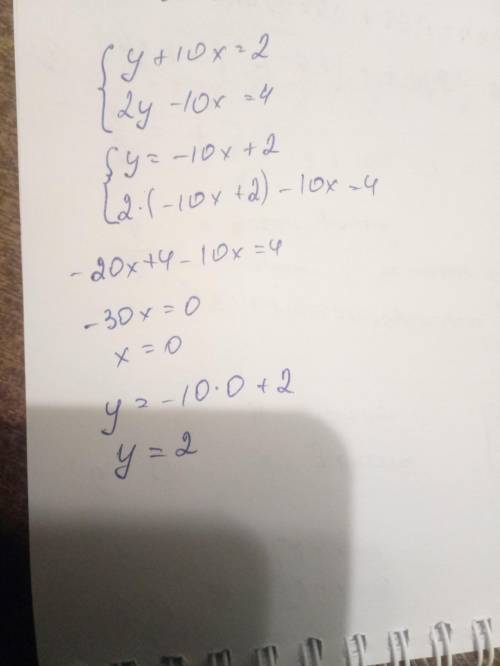 { y + 10x = 2
{ 2y - 10x = 4
{ y = -10x + 2
{ 2·(-10x + 2) - 10x = 4
-20x + 4 - 10x = 4
-30x = 0
x = 0
y = -10·0 + 2
y = 2